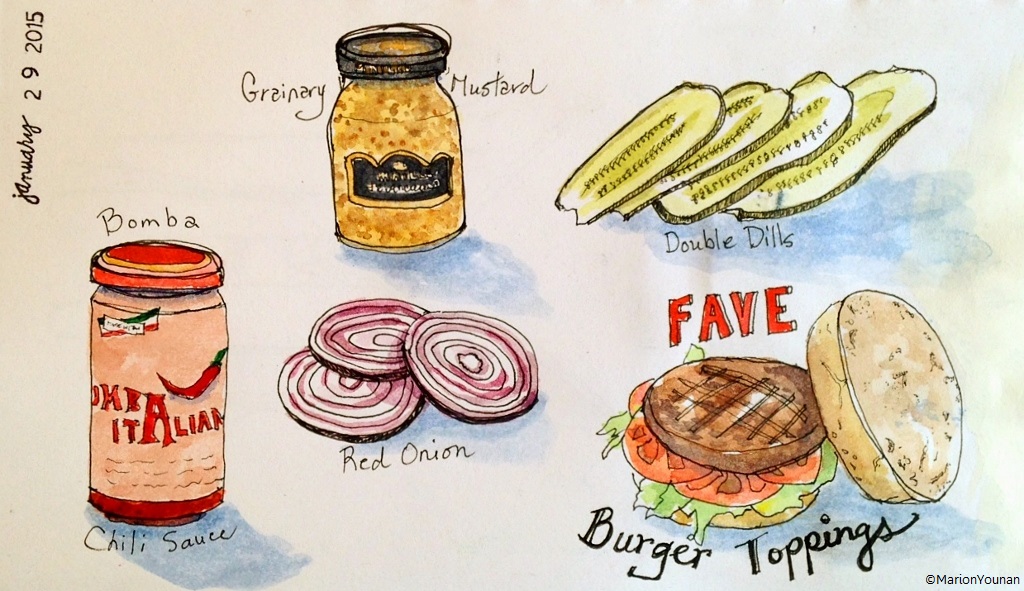 january 29 2015
Grainary Mustard
Double Dills
Bomba
OMBA
ITALIAN
Chili Sauce
Red Onion
FAVE
Burger Toppings
©MarionYounan